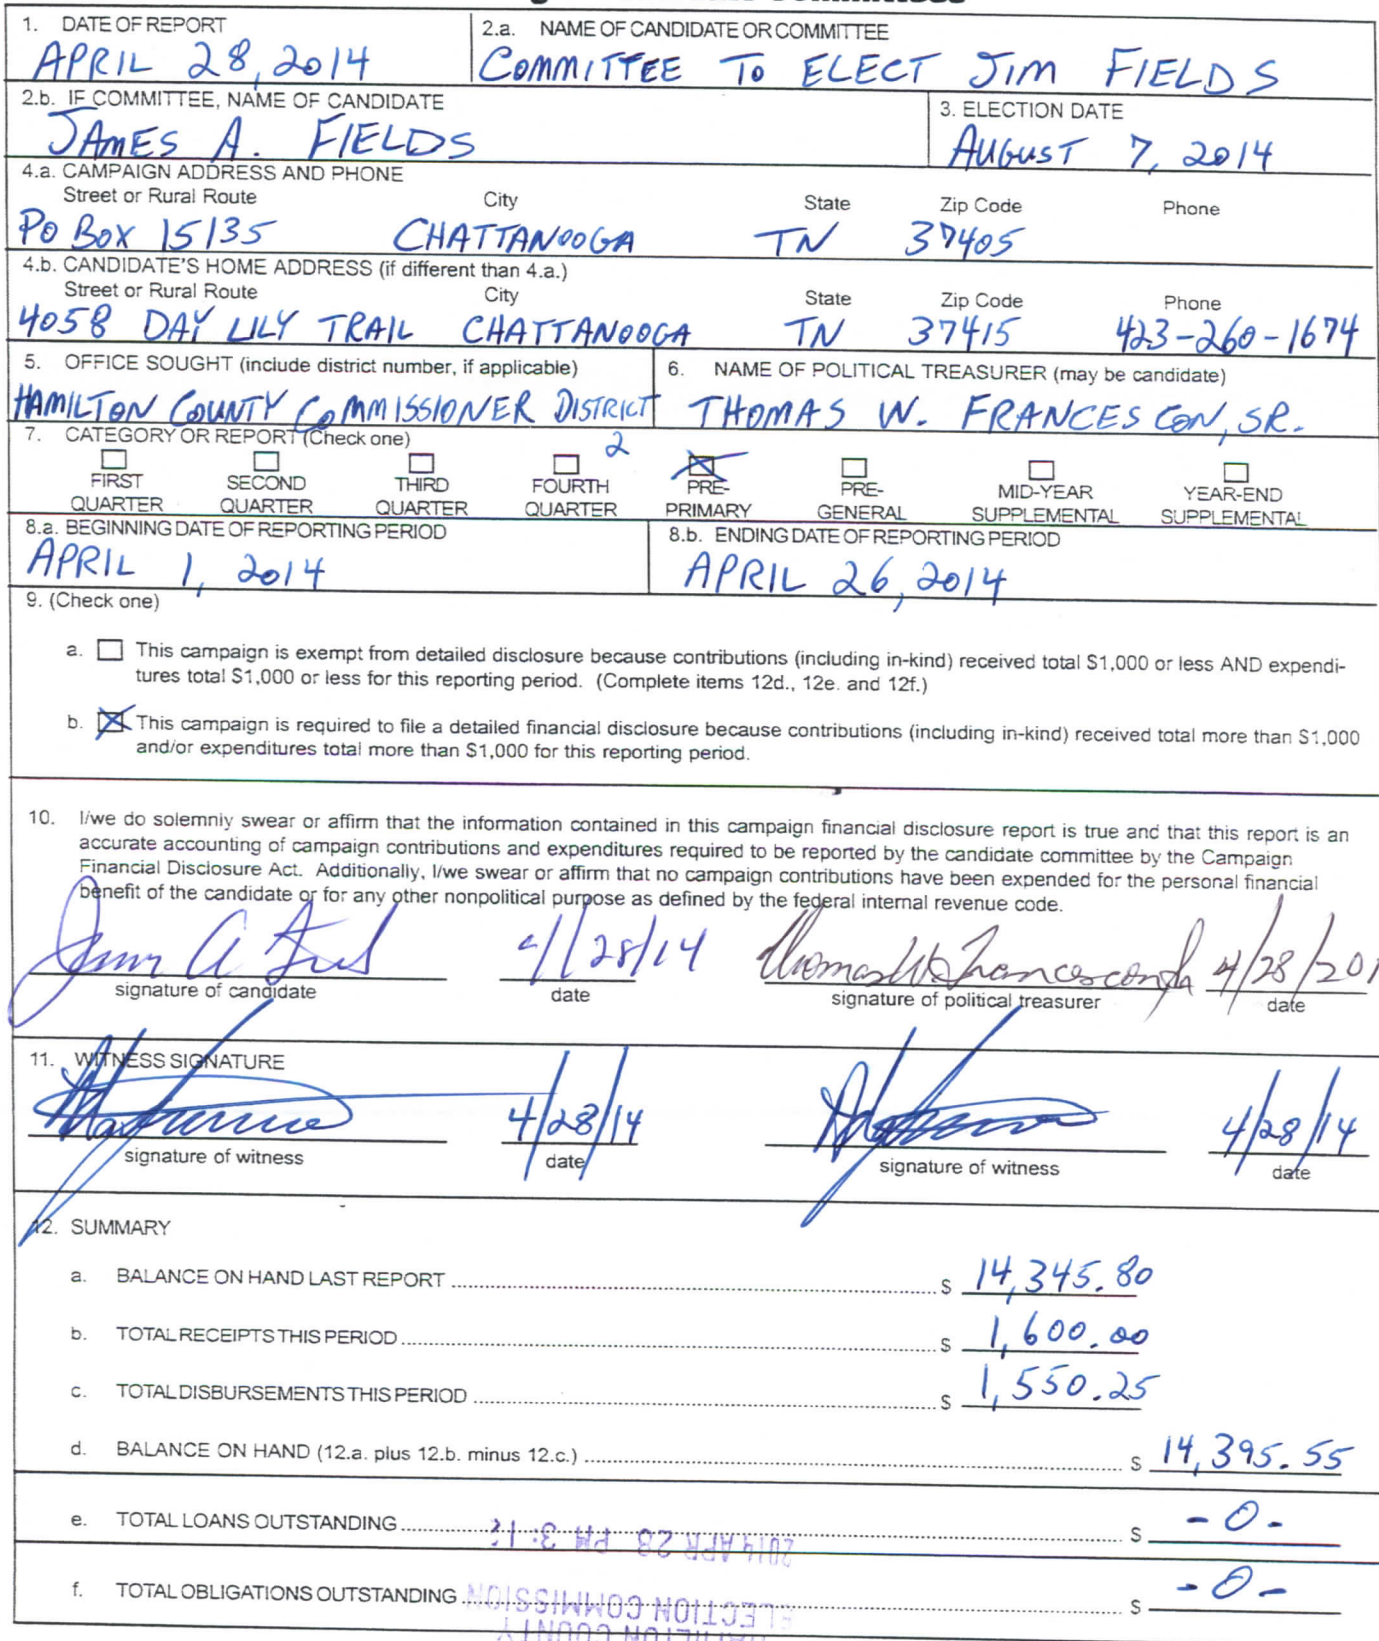 1. DATE OF REPORT
APRIL 28, 2014
2.a. NAME OF CANDIDATE OR COMMITTEE
COMMITTEE TO ELECT JIM FIELDS
2.b. IF COMMITTEE, NAME OF CANDIDATE
JAMES A. FIELDS
3. ELECTION DATE
AUGUST 7, 2014
4.a. CAMPAIGN ADDRESS AND PHONE
Street or Rural Route City State Zip Code Phone
PO BOX 15135 CHATTANOOGA TN 37405
4.b. CANDIDATE'S HOME ADDRESS (if different than 4.a.)
Street or Rural Route City State Zip Code Phone
4058 DAY LILY TRAIL CHATTANOOGA TN 37415 423-260-1674
5. OFFICE SOUGHT (include district number, if applicable)
HAMILTON COUNTY COMMISSIONER DISTRICT
2
6. NAME OF POLITICAL TREASURER (may be candidate)
THOMAS W. FRANCESCON, SR.
7. CATEGORY OR REPORT (Check one)
FIRST QUARTER
SECOND QUARTER
THIRD QUARTER
FOURTH QUARTER
PRE-PRIMARY
PRE-GENERAL
MID-YEAR SUPPLEMENTAL
YEAR-END SUPPLEMENTAL
8.a. BEGINNING DATE OF REPORTING PERIOD
APRIL 1, 2014
8.b. ENDING DATE OF REPORTING PERIOD
APRIL 26, 2014
9. (Check one)
a. This campaign is exempt from detailed disclosure because contributions (including in-kind) received total $1,000 or less AND expendi-
tures total $1,000 or less for this reporting period. (Complete items 12d., 12e. and 12f.)
b. This campaign is required to file a detailed financial disclosure because contributions (including in-kind) received total more than $1,000
and/or expenditures total more than $1,000 for this reporting period.
10. I/we do solemnly swear or affirm that the information contained in this campaign financial disclosure report is true and that this report is an
accurate accounting of campaign contributions and expenditures required to be reported by the candidate committee by the Campaign
Financial Disclosure Act. Additionally, I/we swear or affirm that no campaign contributions have been expended for the personal financial
benefit of the candidate or for any other nonpolitical purpose as defined by the federal internal revenue code.
4/28/14 4/28/201
signature of candidate date signature of political treasurer date
11. WITNESS SIGNATURE
4/28/14 4/28/14
signature of witness date signature of witness date
12. SUMMARY
a. BALANCE ON HAND LAST REPORT $ 14,345.80
b. TOTAL RECEIPTS THIS PERIOD $ 1,600.00
c. TOTAL DISBURSEMENTS THIS PERIOD $ 1,550.25
d. BALANCE ON HAND (12.a. plus 12.b. minus 12.c.) $ 14,395.55
e. TOTAL LOANS OUTSTANDING $ -0-
2014 APR 28 PM 3:1
f. TOTAL OBLIGATIONS OUTSTANDING $ -0-
ELECTION COMMISSION
HAMILTON COUNTY